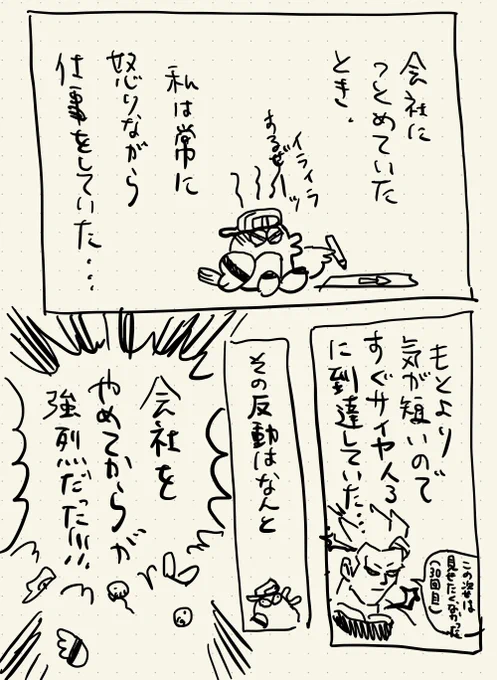 会社に
つとめていた
とき、
イライラ
するぜッ
私は常に
怒りながら
仕事をしていた…
もとより
気が短いので
すぐサイヤ人3
に到達していた…
この姿は
見せたくなかった
(30回目)
その反動はなんと
会社を
やめてからが
強烈だった!!!